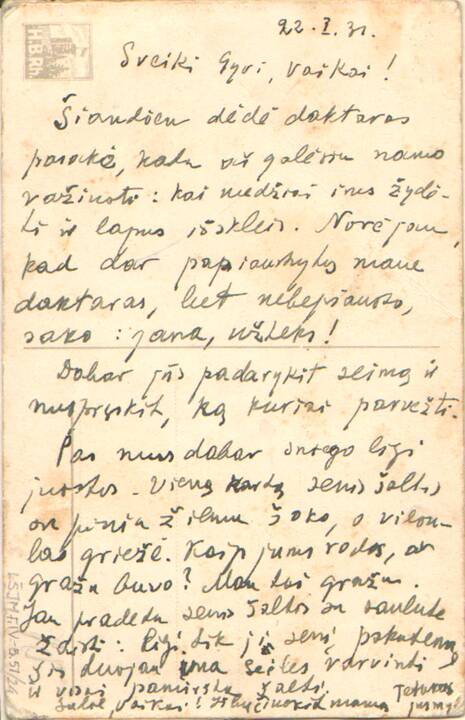 22.I.31.
Sveiki Gyvi, vaikai!
Šiandien dėdė daktaras
pasakė, kada aš galėsiu namo
važiuoti: kai medžiai ims žydė-
ti ir lapus išskleis. Norėjau,
kad dar papjaustytų mane
daktaras, bet nebepjausto,
sako: gana, užteks!
Dabar jūs padarykit seimą ir
nuspręskit, ką kuriai parvežti.
Pas mus dabar sniego ligi
juostos. Vieną kartą senis šaltis
su pusnia žilmu šoko, o
griežė. Kaip jums rodos, ar
gražu buvo? Man tai gražu.
Jau pradeda senis šaltis su saulute
žaisti: ligi tik jį senį pakutena,
šis duoda seiles varvinti
ir visai pamiršta šalti.
Sudie, vaikai! Išbučiuokit mamą
Tetukas
jūsų
LŠJM:IV-B511/24
H.B.Rh.